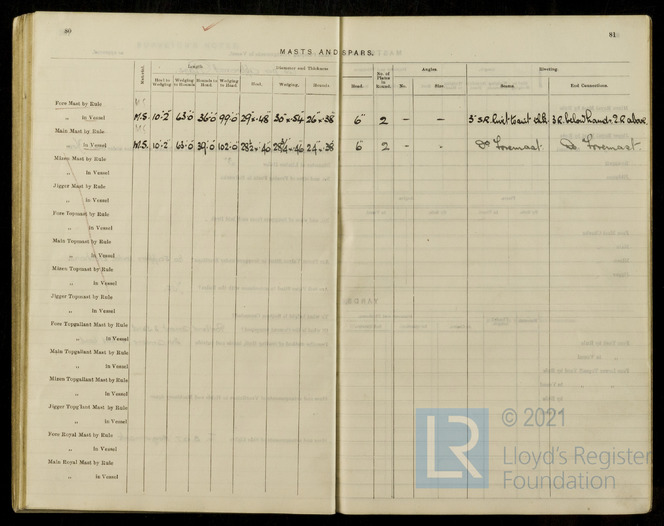 80
81
MASTS AND SPARS.
Material. Length Diameter and Thickness Angles Riveting
Heel to Wedging Wedging to Hounds Hounds to Head Wedging to Head Heel. Wedging. Hounds Head. No. of Plates in Round. No. Size Seams End Connections.
Fore Mast by Rule M.S.
„ in Vessel M.S. 10·2 63·0 36·0 99·0 29"×·48 30"×·54 26"×·38 6" 2 – –
Main Mast by Rule M.S.
„ in Vessel M.S. 10·2 63·0 39·0 102·0 6 2 - - Do Foremast Do Foremast
Mizen Mast by Rule
„ in Vessel
Jigger Mast by Rule
„ in Vessel
Fore Topmast by Rule
„ in Vessel
Main Topmast by Rule
„ in Vessel
Mizen Topmast by Rule
„ in Vessel
Jigger Topmast by Rule
„ in Vessel
Fore Topgallant Mast by Rule
„ in Vessel
Main Topgallant Mast by Rule
„ in Vessel
Mizen Topgallant Mast by Rule
„ in Vessel
Jigger Topg'lant Mast by Rule
„ in Vessel
Fore Royal Mast by Rule
„ in Vessel
Main Royal Mast by Rule
„ in Vessel
LR
© 2021
Lloyd's Register
Foundation